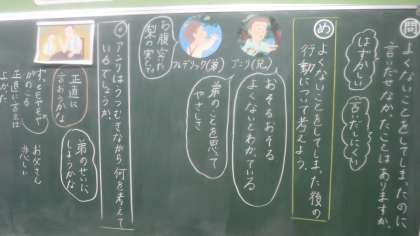 問
よくないことをしてしまったのに
言いだせなかったことはありますか。
はずかしい
言いだしにくい
め
よくないことをしてしまった後の
行動について考えよう。
アニー(兄)
フレデリック(弟)
おそるおそる
よくないとわかっている
弟のことを思って
やさしさ
お腹
アニーはうつむきながら何を考えて
いるでしょうか。
正直に
言おうかな
弟のせいに
しようかな
お父さん
悲しい
正直に言えば
よかった